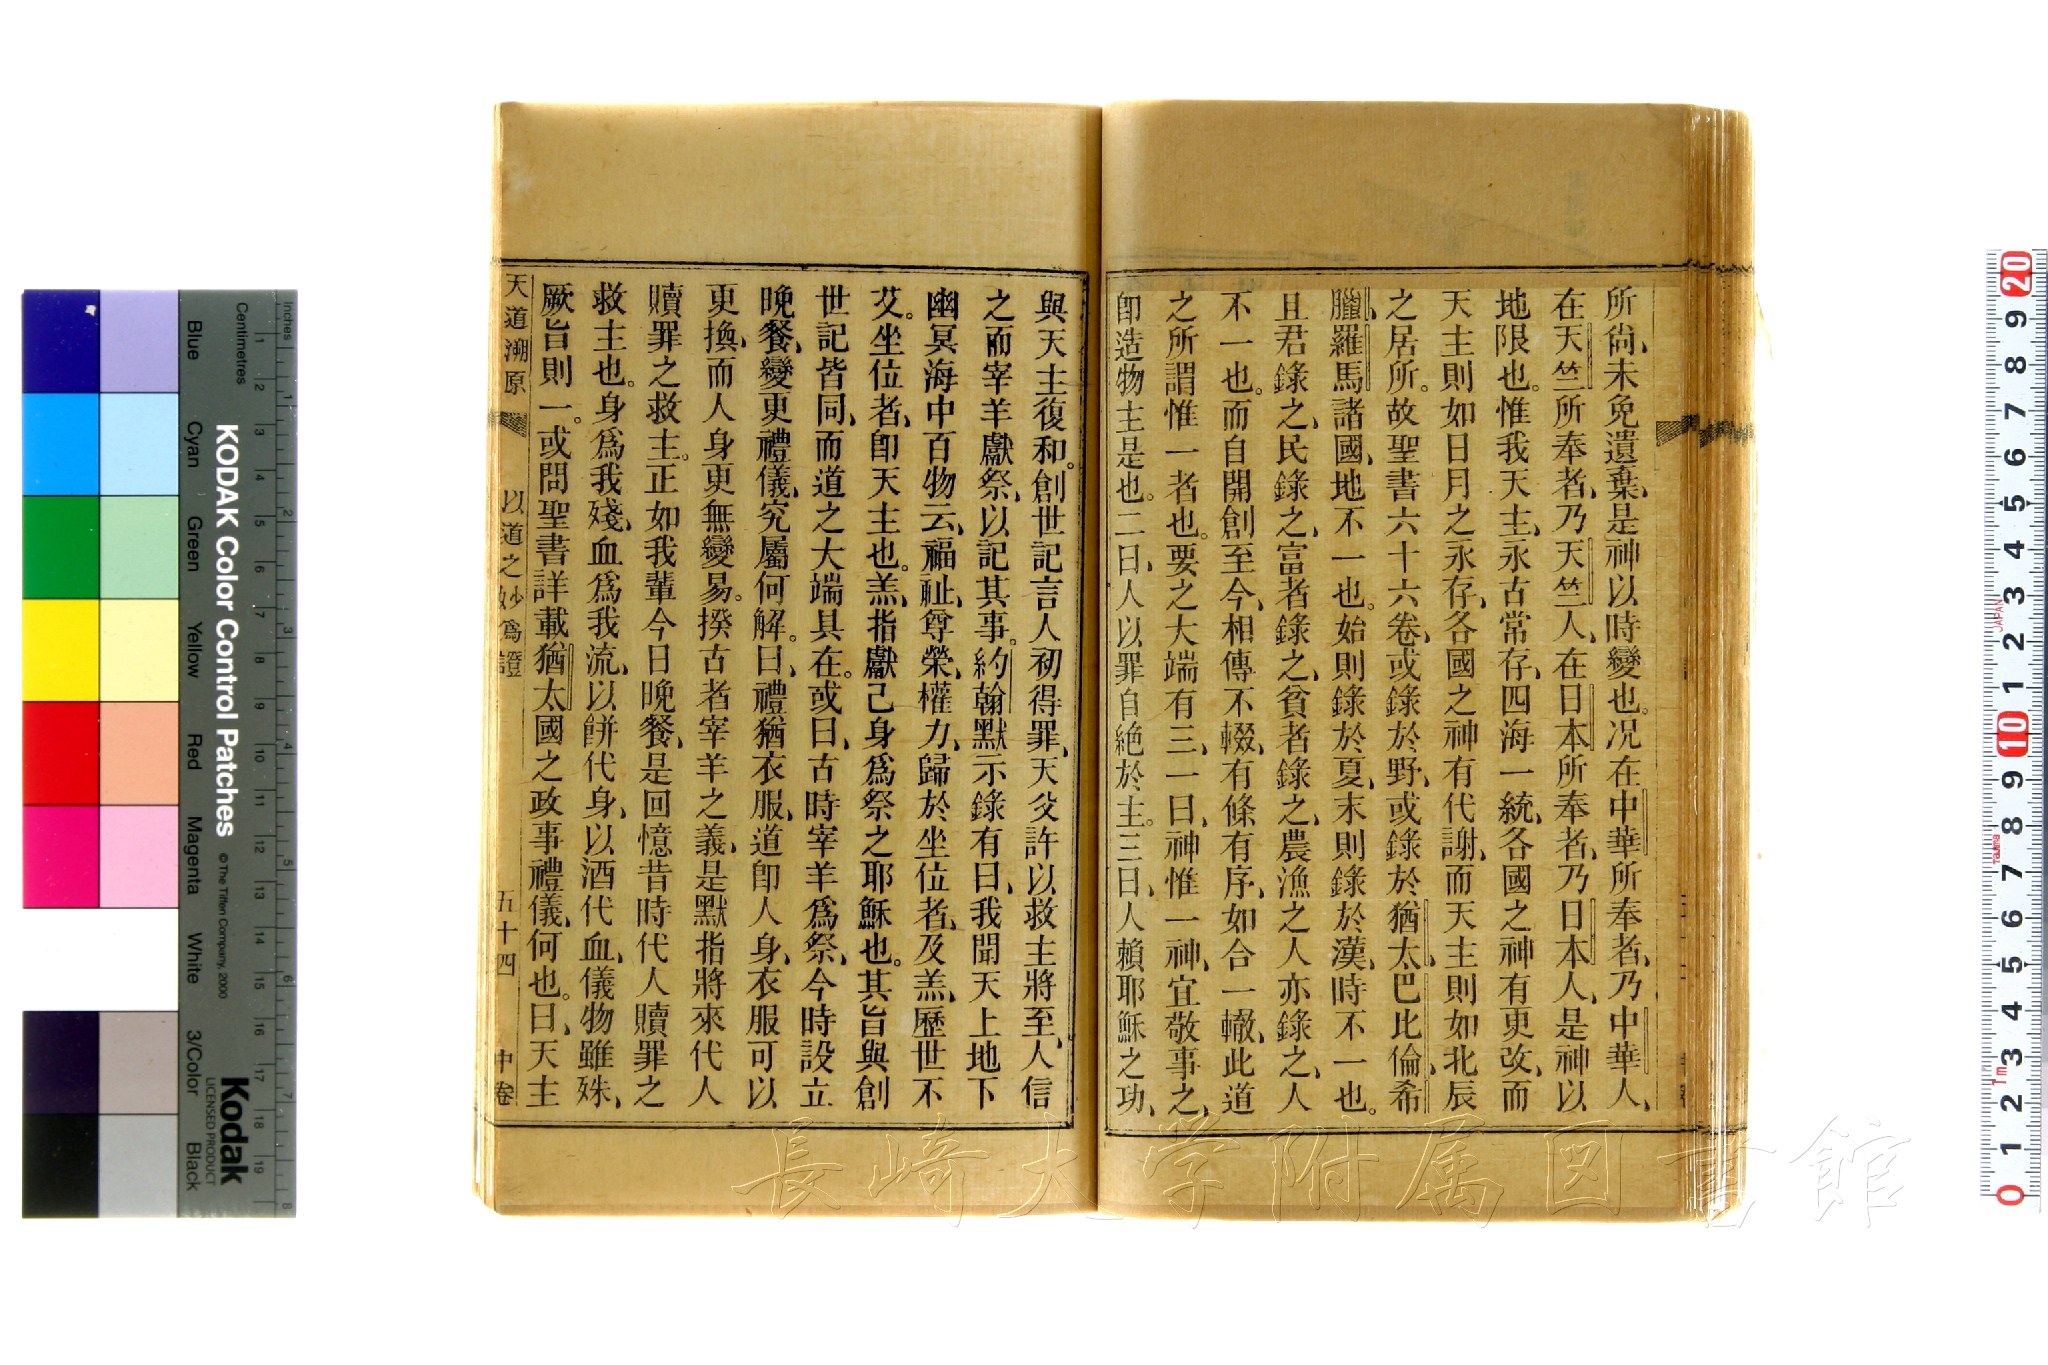 所尙、未免遺棄、是神以時變也。况在中華所奉者、乃中華人、
在天竺所奉者、乃天竺人、在日本所奉者、乃日本人、是神以
地限也。惟我天主、永古常存、四海一統、各國之神有更改、而
天主則如日月之永存、各國之神有代謝、而天主則如北辰
之居所。故聖書六十六卷、或錄於野、或錄於猶太、巴比倫、希
臘、羅馬諸國、地不一也。始則錄於夏、末則錄於漢、時不一也。
且君錄之、民錄之、富者錄之、貧者錄之、農漁之人亦錄之、人
不一也。而自開創至今、相傳不輟、有條有序、如合一轍、此道
之所謂惟一者也。要之大端有三、一曰、神惟一神、宜敬事之、
卽造物主是也。二曰、人以罪自絶於主。三曰、人賴耶穌之功、
與天主復和。創世記言人初得罪、天父許以救主將至、人信
之而宰羊獻祭、以記其事。約翰默示錄有曰、我聞天上地下
幽冥海中百物云、福祉、尊榮、權力、歸於坐位者、及羔、歷世不
艾。坐位者、卽天主也。羔、指獻己身爲祭之耶穌也。其旨與創
世記皆同、而道之大端具在。或曰、古時宰羊爲祭、今時設立
晚餐、變更禮儀、究屬何解。曰、禮猶衣服、道卽人身、衣服可以
更換、而人身更無變易。揆古者宰羊之義、是默指將來代人
贖罪之救主。正如我輩今日晚餐、是回憶昔時代人贖罪之
救主也。身爲我殘、血爲我流、以餅代身、以酒代血、儀物雖殊、
厥旨則一。或問聖書詳載猶太國之政事禮儀、何也。曰、天主
天道溯原 以道之妙爲證 五十四 中卷
KODAK Color Control Patches
© The Tiffen Company, 2000
Kodak
LICENSED PRODUCT
Inches
Centimetres
Blue Cyan Green Yellow Red Magenta White 3/Color Black
長崎大学附属図書館